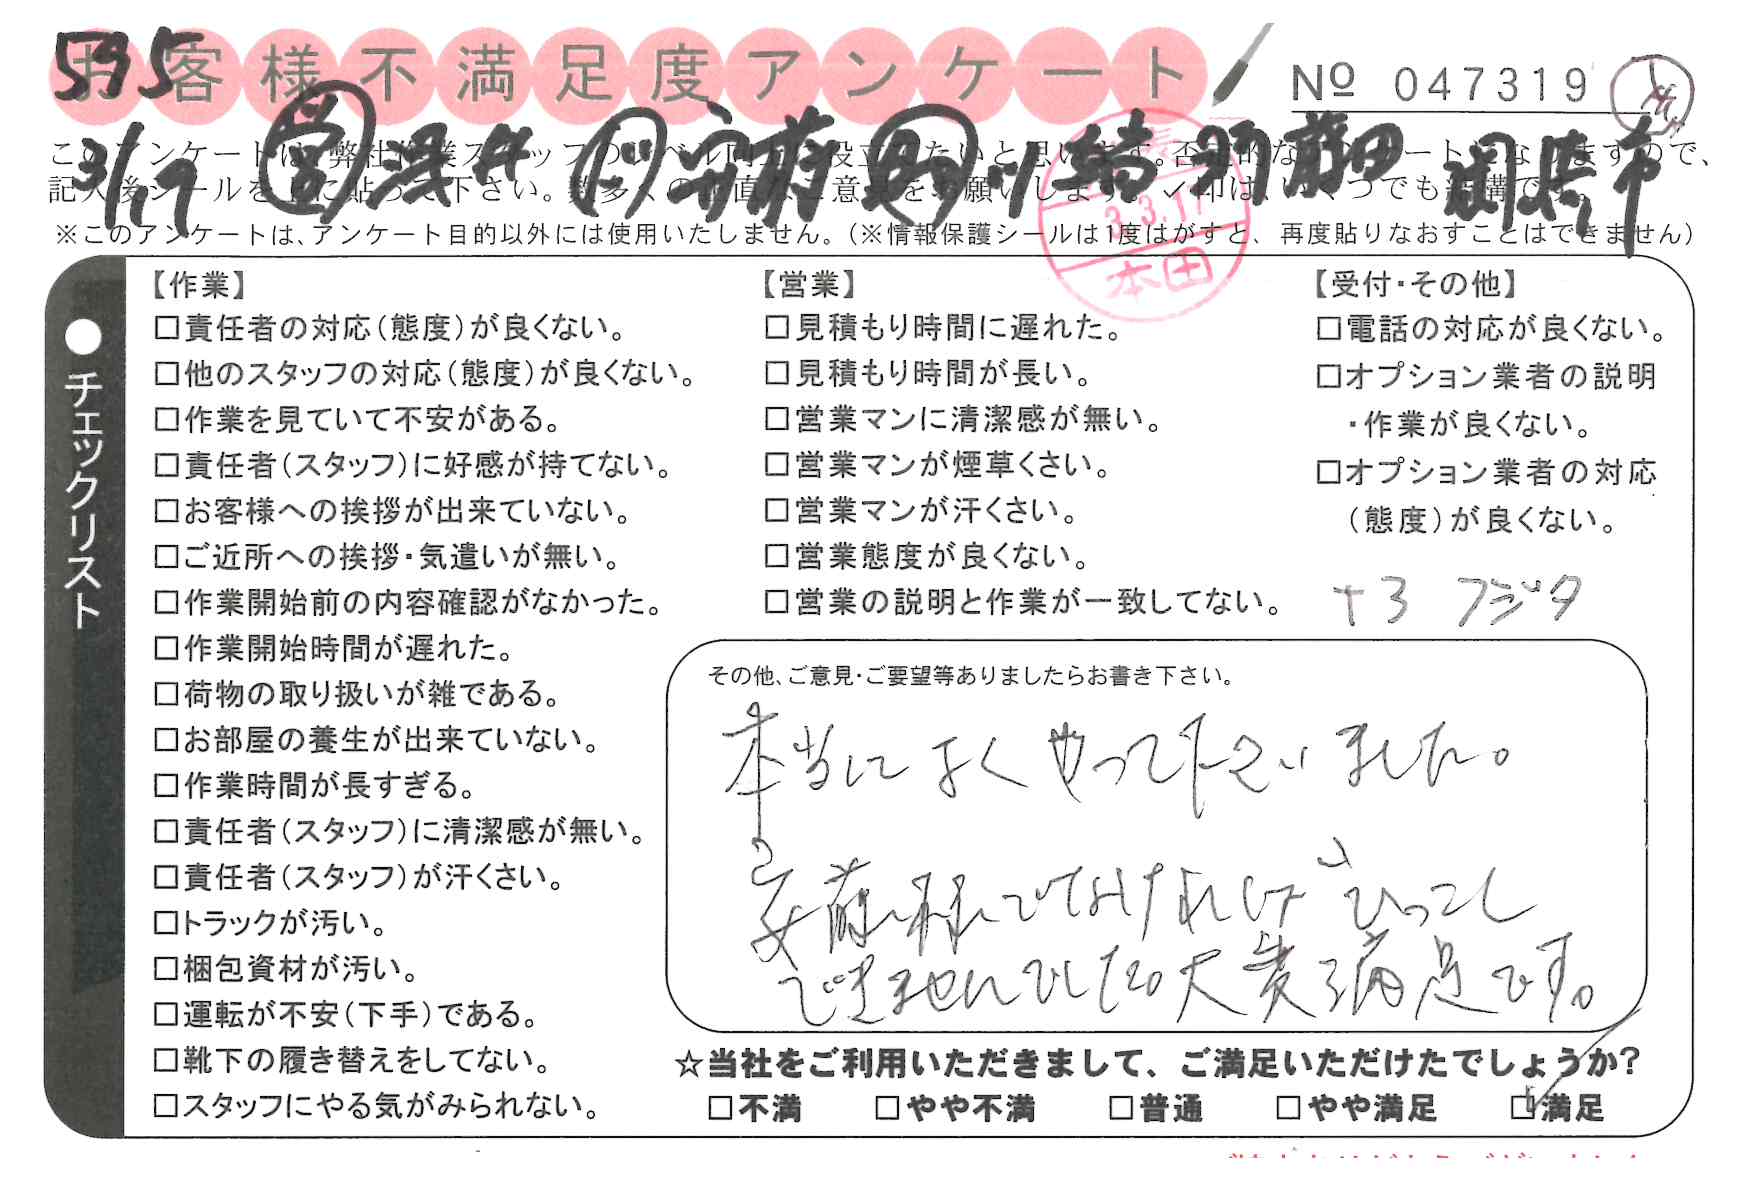 595
お客様不満足度アンケート
No 047319
3/17 営 浅井
このアンケートは、弊社作業スタッフのレベル向上に役立てたいと思います。否定的なアンケートになりますので、
記入後シールを上に貼って下さい。数多くの正直なご意見をお願いします。✓印は、いくつでも結構です。
※このアンケートは、アンケート目的以外には使用いたしません。（※情報保護シールは1度はがすと、再度貼りなおすことはできません）
3.3.17
本田
●チェックリスト
【作業】
□責任者の対応（態度）が良くない。
□他のスタッフの対応（態度）が良くない。
□作業を見ていて不安がある。
□責任者（スタッフ）に好感が持てない。
□お客様への挨拶が出来ていない。
□ご近所への挨拶・気遣いが無い。
□作業開始前の内容確認がなかった。
□作業開始時間が遅れた。
□荷物の取り扱いが雑である。
□お部屋の養生が出来ていない。
□作業時間が長すぎる。
□責任者（スタッフ）に清潔感が無い。
□責任者（スタッフ）が汗くさい。
□トラックが汚い。
□梱包資材が汚い。
□運転が不安（下手）である。
□靴下の履き替えをしてない。
□スタッフにやる気がみられない。
【営業】
□見積もり時間に遅れた。
□見積もり時間が長い。
□営業マンに清潔感が無い。
□営業マンが煙草くさい。
□営業マンが汗くさい。
□営業態度が良くない。
□営業の説明と作業が一致してない。
【受付・その他】
□電話の対応が良くない。
□オプション業者の説明
・作業が良くない。
□オプション業者の対応
（態度）が良くない。
+3 フジタ
その他、ご意見・ご要望等ありましたらお書き下さい。
本当によくやって下さいました。
安前様でなければひっこし
できませんでした。大変満足です。
☆当社をご利用いただきまして、ご満足いただけたでしょうか？
□不満 □やや不満 □普通 □やや満足 ☑満足